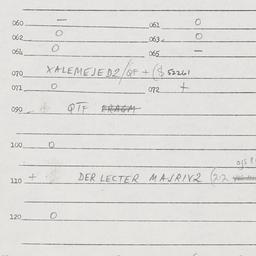 060 — 061 0
062 0 063 0
064 0 065 —
070 XALEMEJED2/QF + ($ 52261
071 0 072 +
090 QTF FRAGM
100 0
110 + DER LECTER MAJRIV2 (22
120 0